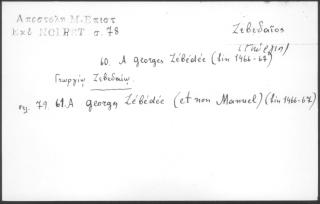 Ἀποστόλη Μ. Ἐπιστ
Ἐκδ NOIRET σ. 78
Ζεβεδαῖος
(Γεώργιος)
60. A Georges Zébédée (fin 1466-67)
Γεωργίῳ Ζεβεδαίῳ.
79 61. A Georges Zébédée (et non Manuel) (fin 1466-67)